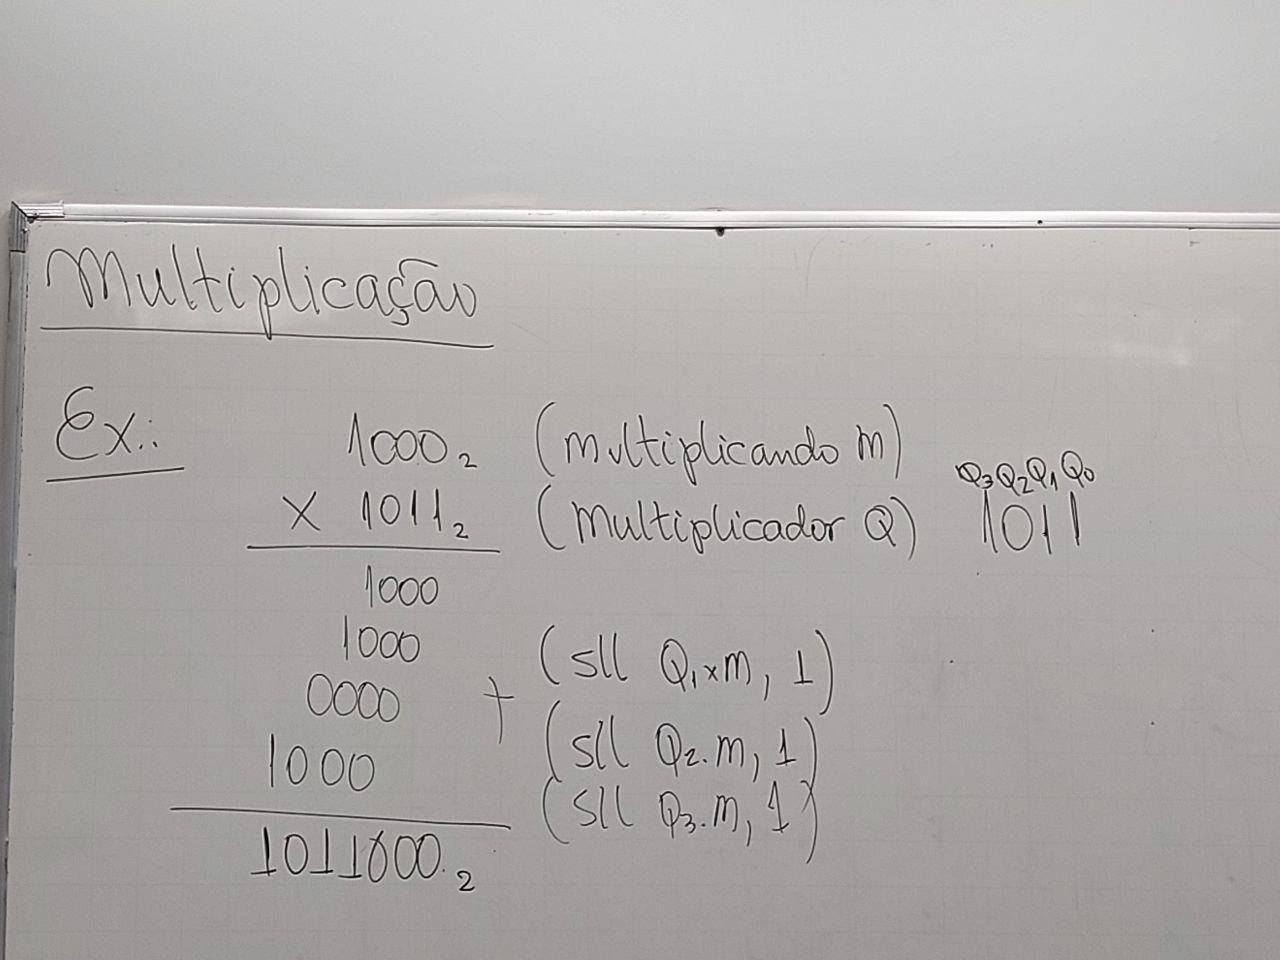 Multiplicação
Ex.: 1000₂ (multiplicando m)
Q₃Q₂Q₁Q₀
x 1011₂ (multiplicador Q) 1011
1000
1000 (sll Q₁xm, 1)
0000 + (sll Q₂.m, 1)
1000 (sll Q₃.m, 1)
1011000₂